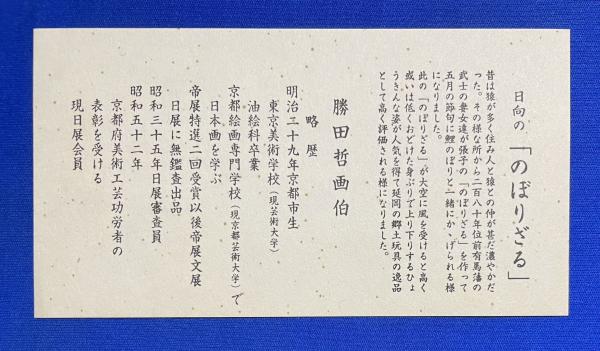 日向の「のぼりざる」
昔は猿が多く住み人と猿との仲が甚だ濃やかだ
った。その様な所から二百八十年位前有馬藩の
武士の妻女達が張子の「のぼりざる」を作って
五月の節句に鯉のぼりと一緒にかゝげられる様
になりました。
此の「のぼりざる」が大空に風を受けると高く
或いは低くおどけた身ぶりで上り下りするひょ
うきんな姿が人気を得て延岡の郷土玩具の逸品
として高く評価される様になりました。
勝田哲画伯
略歴
明治二十九年京都市生
東京美術学校(現芸術大学)
油絵科卒業。
京都絵画専門学校(現京都芸術大学)で
日本画を学ぶ
帝展特選二回受賞以後帝展文展
日展に無鑑査出品
昭和三十五年日展審査員
昭和五十二年
京都府美術工芸功労者の
表彰を受ける
現日展会員